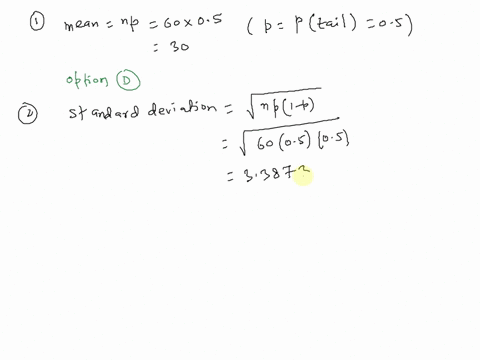 ① mean = np = 60 × 0.5 (p = p(tail) = 0.5)
= 30
option Ⓓ
② standard deviation = √np(1-p)
= √60(0.5){0.5}
= 3.3873